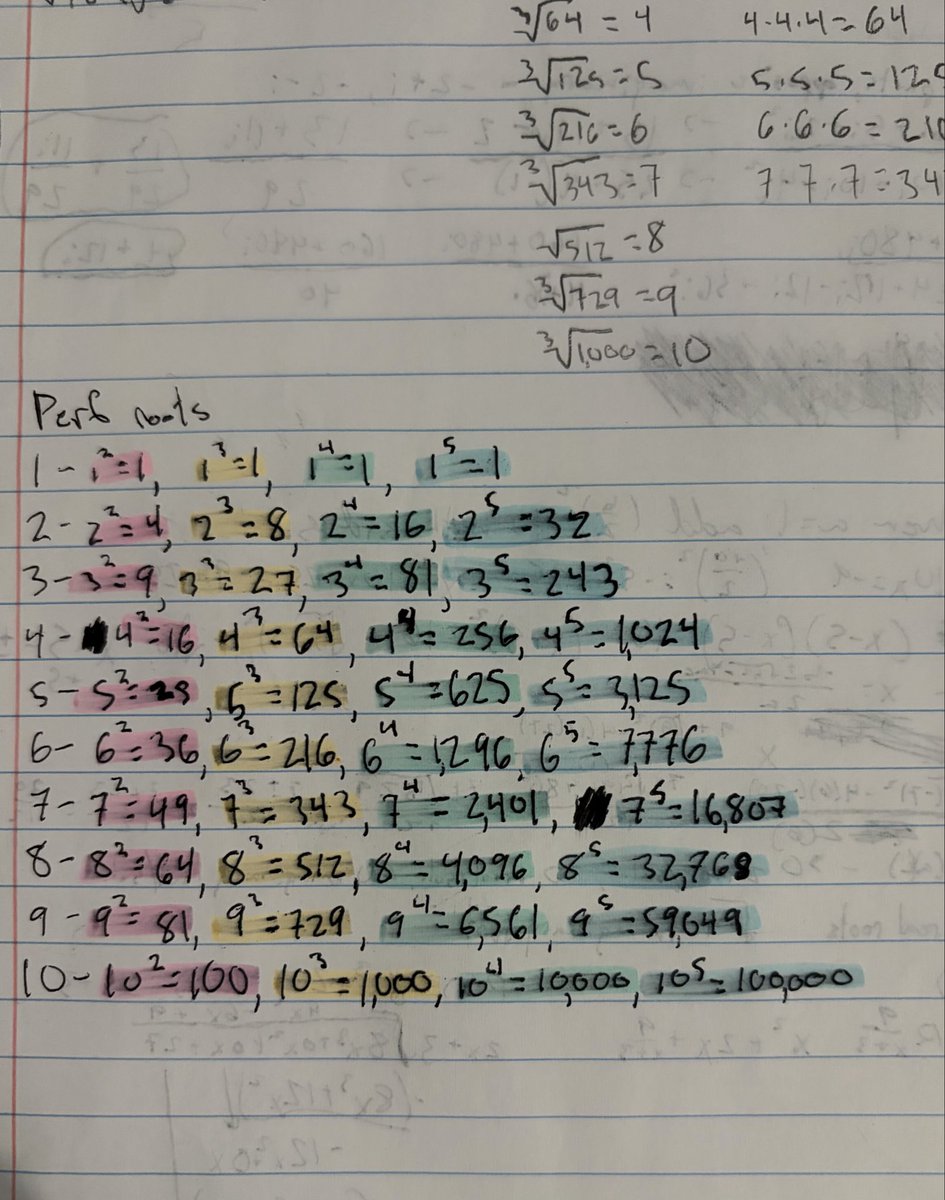 ∛64 = 4 4·4·4 = 64
∛125 = 5 5·5·5 = 125
∛216 = 6 6·6·6 = 21
∛343 = 7 7·7·7 = 34
√512 = 8
∛729 = 9
∛1,000 = 10
Perf roots
1 - 1²=1, 1³=1, 1⁴=1, 1⁵=1
2 - 2²=4, 2³=8, 2⁴=16, 2⁵=32
3 - 3²=9, 3³=27, 3⁴=81, 3⁵=243
4 - 4²=16, 4³=64, 4⁴=256, 4⁵=1,024
5 - 5²=25, 5³=125, 5⁴=625, 5⁵=3,125
6 - 6²=36, 6³=216, 6⁴=1,296, 6⁵=7,776
7 - 7²=49, 7³=343, 7⁴=2,401, 7⁵=16,807
8 - 8²=64, 8³=512, 8⁴=4,096, 8⁵=32,768
9 - 9²=81, 9³=729, 9⁴=6,561, 9⁵=59,049
10 - 10²=100, 10³=1,000, 10⁴=10,000, 10⁵=100,000